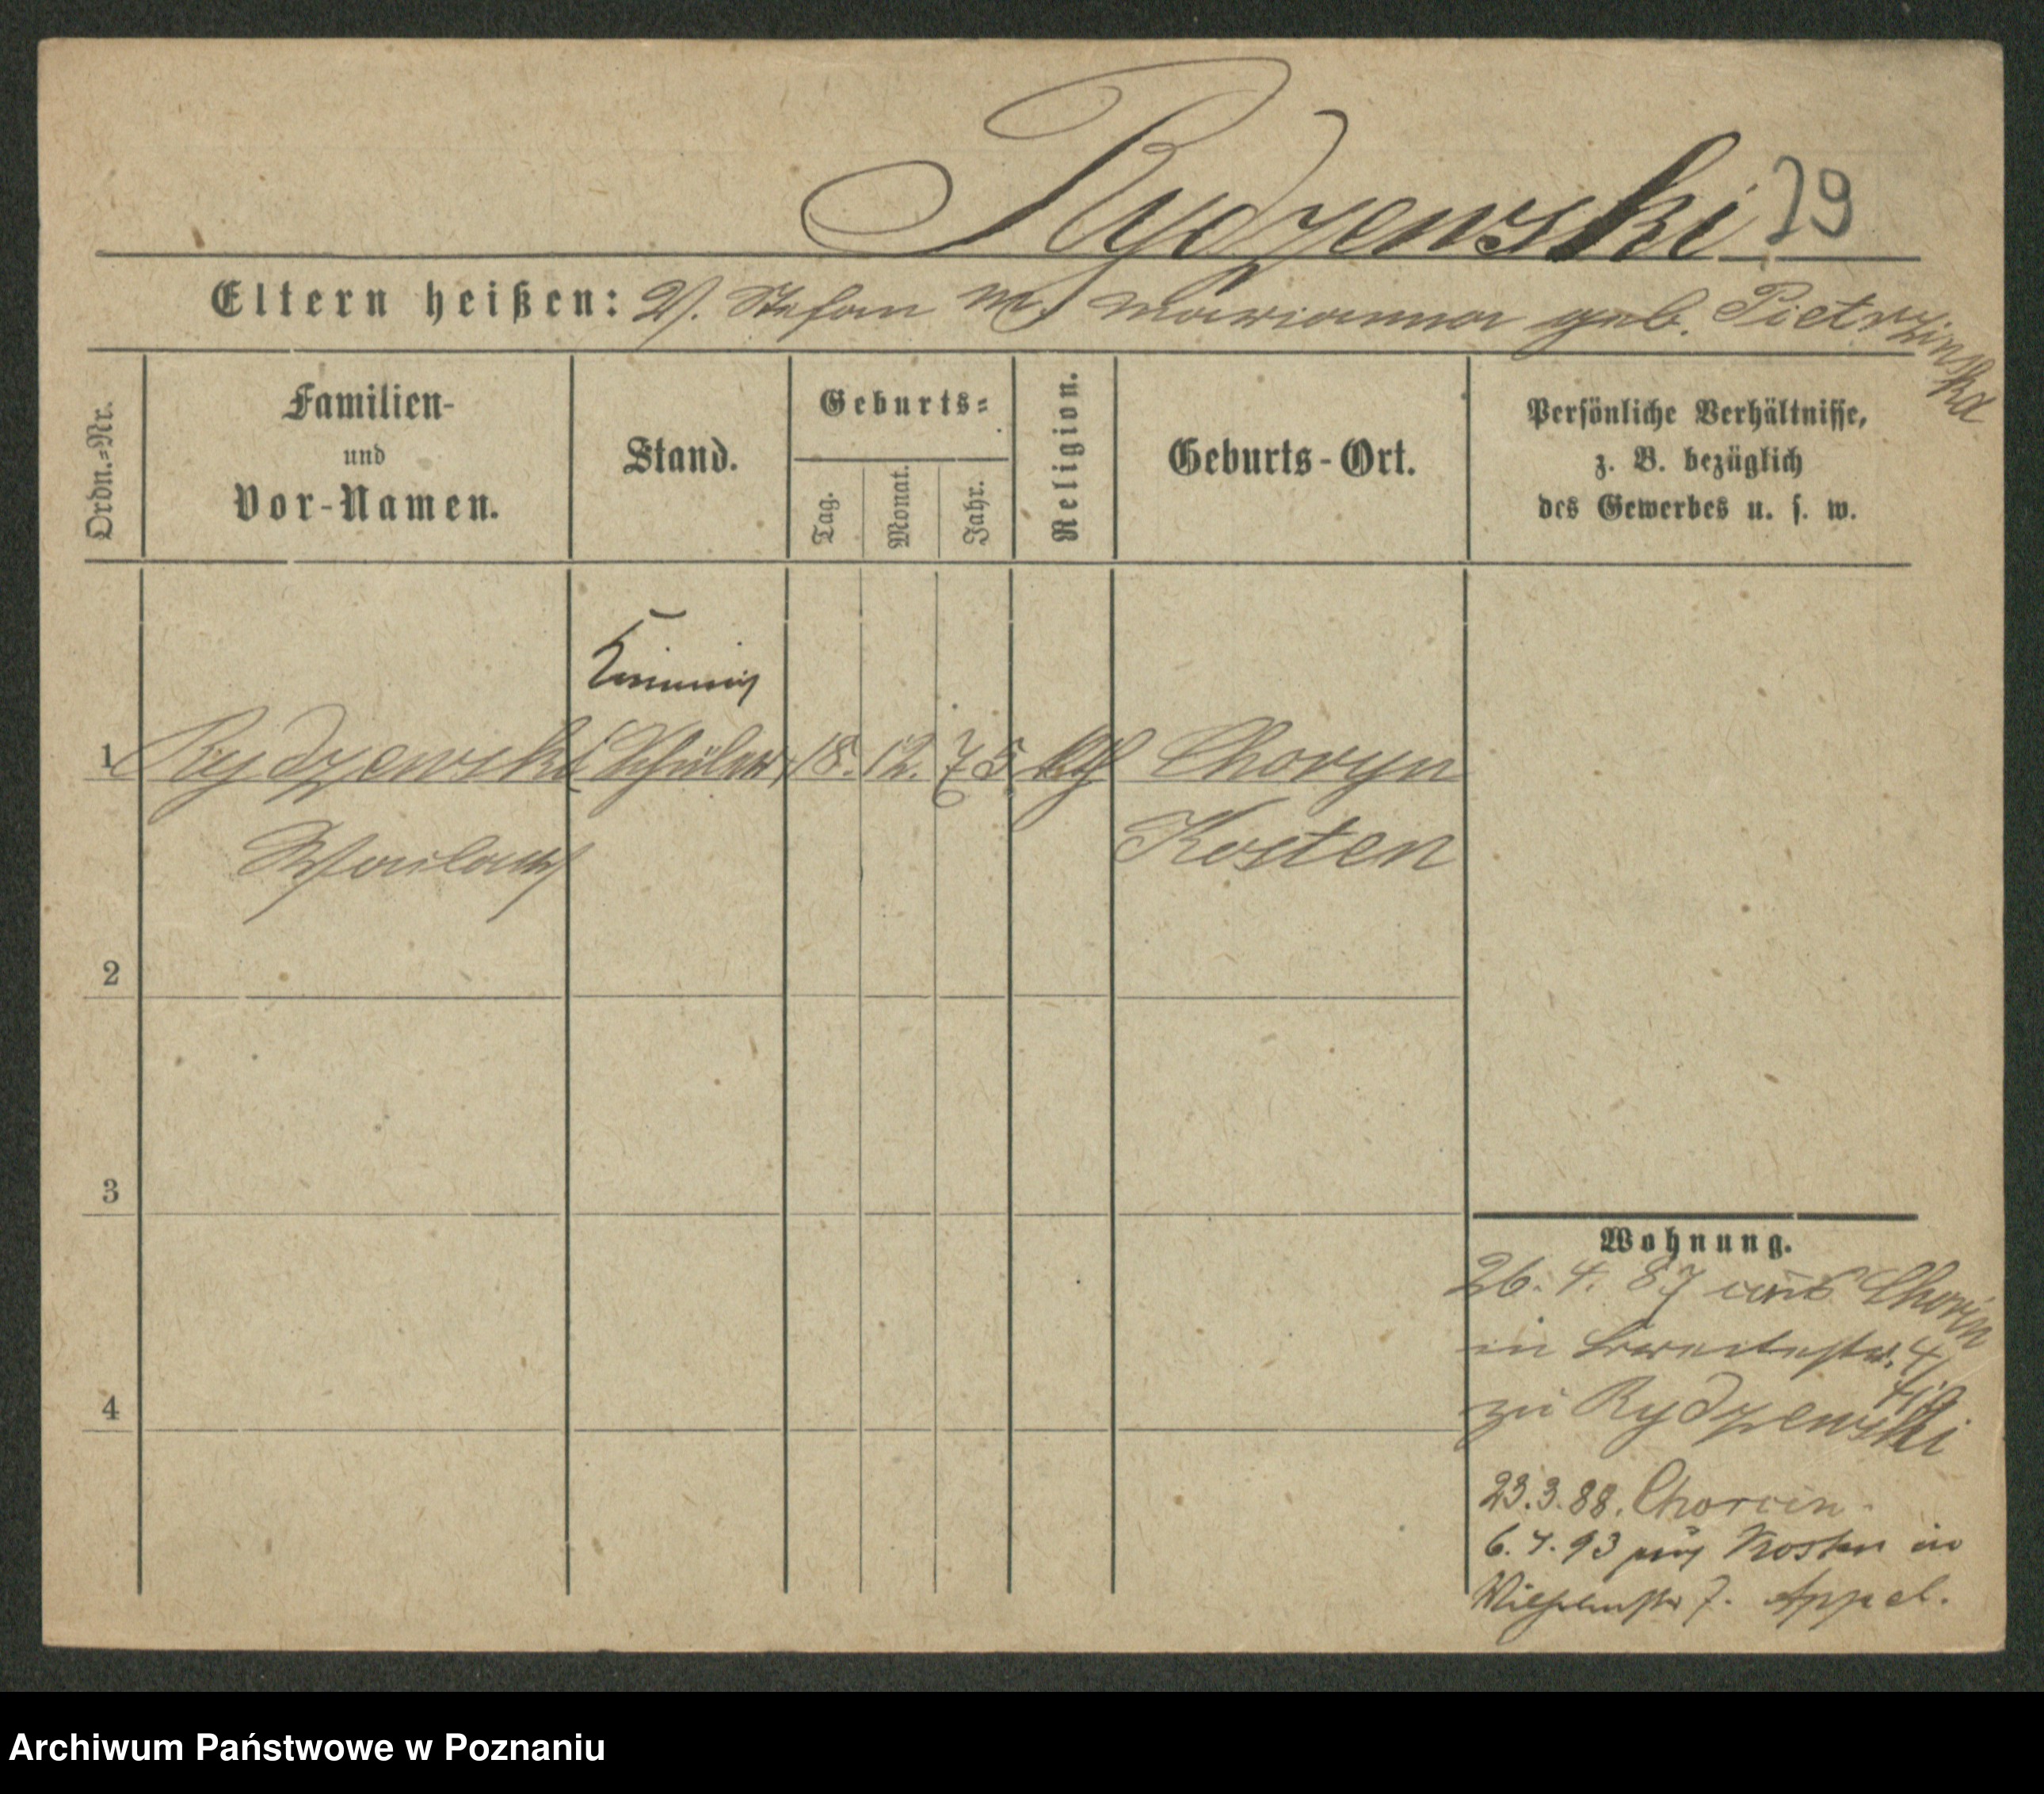 Rydzewski 29
Eltern heißen: V. Stefan M. Marianna geb. Pietrzinska
Ordn.=Nr.
Familien-
und
Vor-Namen.
Stand.
Geburts=
Tag.
Monat.
Jahr.
Religion.
Geburts-Ort.
Persönliche Verhältnisse,
z. B. bezüglich
des Gewerbes u. s. w.
1 Rydzewski Schüler, 18. 12. 75 kth Choryn
Kosten
2
3
4
Wohnung.
26. 4. 87 aus Chorin
in Breitestr. 4/
zu Rydzewski
23.3.88. Choriin.
6. 4. 93 aus Kosten in
Wilhelmstr 7. Appel.
Archiwum Państwowe w Poznaniu